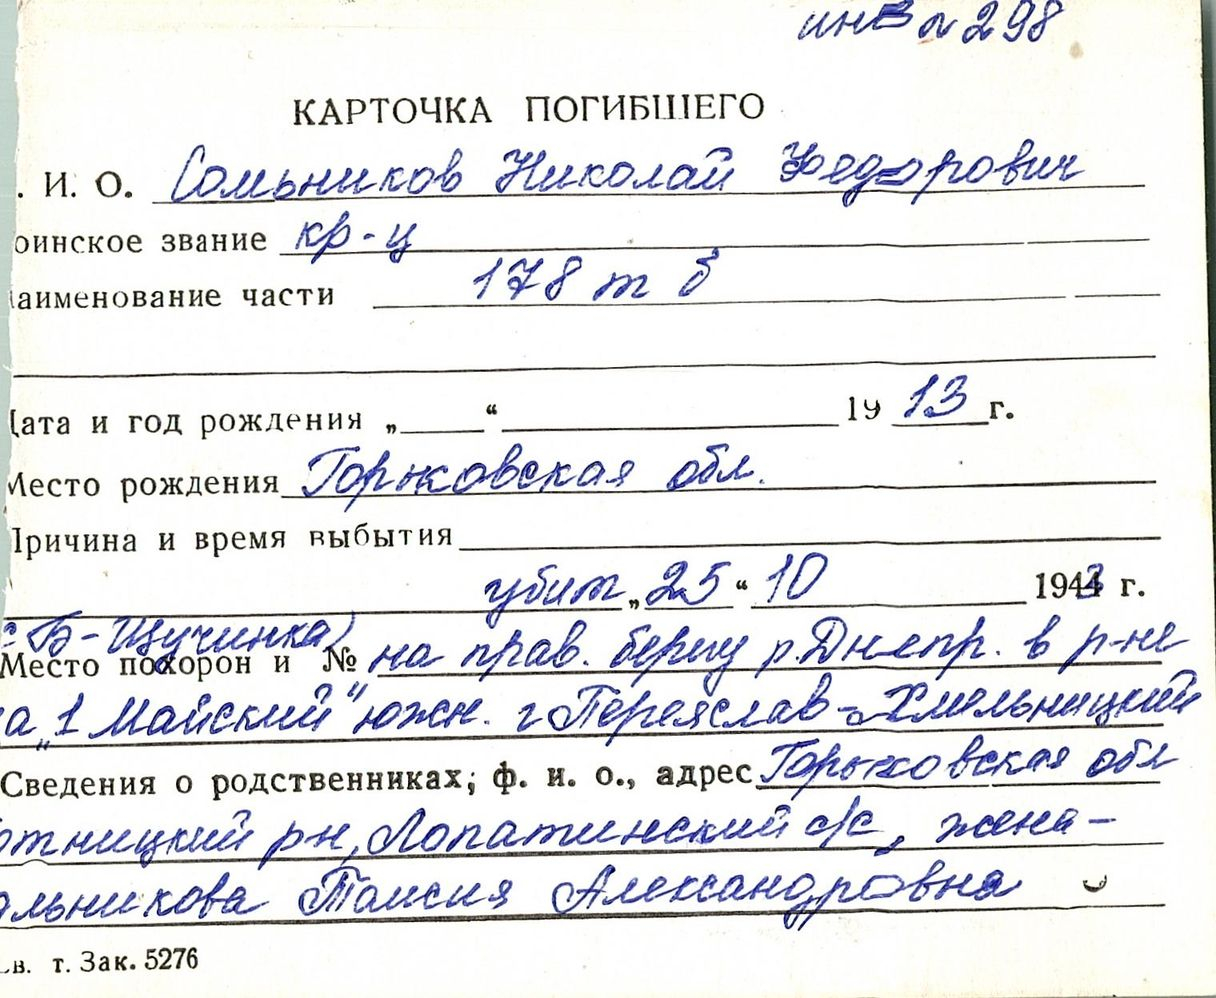 инв № 298
КАРТОЧКА ПОГИБШЕГО
. И. О. Сомьников Николай Федорович
оинское звание кр-ц
аименование части 178 т б
Дата и год рождения „ “ 19 13 г.
Место рождения Горьковская обл.
Причина и время выбытия
убит „25“ 10 1943 г.
с Б-Щучинка)
Место похорон и № на прав. берегу р. Днепр. в р-не
ка „1 Майский" южн. г Переяслав-Хмельницкий
Сведения о родственниках; ф. и. о., адрес Горьковская обл
отницкий рн, Лопатинский с/с, жена-
альникова Таисия Александровна
в. т. Зак. 5276